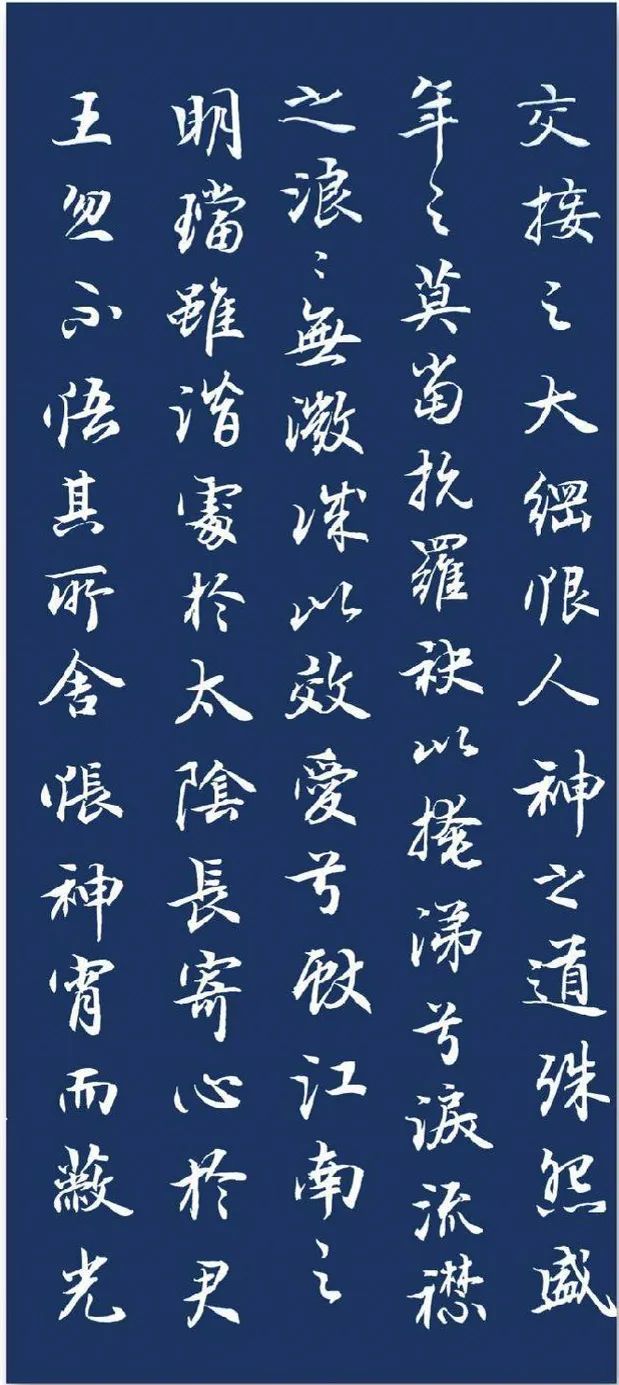 交接之大綱恨人神之道殊怨盛
年之莫當抗羅袂以掩涕兮淚流襟
之浪〻無微誠以效愛兮獻江南之
明璫雖潛處於太陰長寄心於君
王忽不悟其所舍悵神宵而蔽光